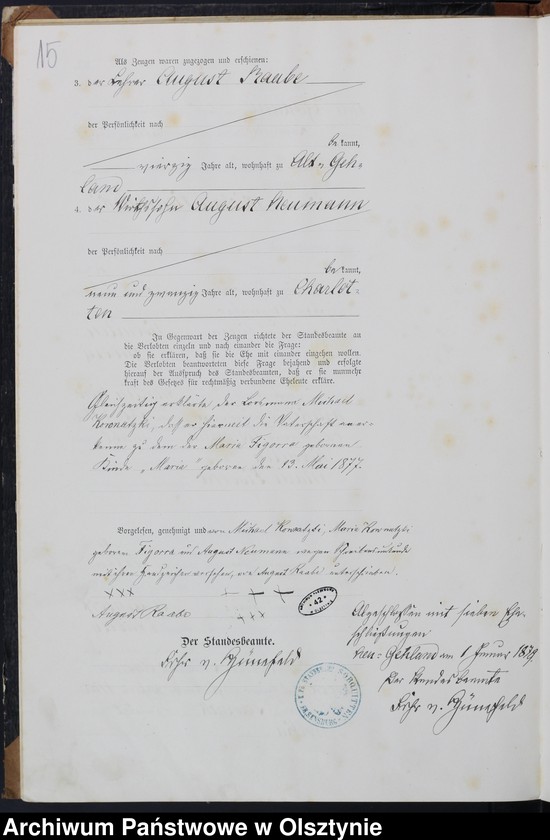 15
Als Zeugen waren zugezogen und erschienen:
3. der Lehrer August Raabe
der Persönlichkeit nach
be kannt,
vierzig Jahre alt, wohnhaft zu Alt-Geh-
land
4. der Wirthssohn August Neumann
der Persönlichkeit nach
be kannt,
neun und zwanzig Jahre alt, wohnhaft zu Charlot-
ten
In Gegenwart der Zeugen richtete der Standesbeamte an
die Verlobten einzeln und nach einander die Frage:
ob sie erklären, daß sie die Ehe mit einander eingehen wollen.
Die Verlobten beantworteten diese Frage bejahend und erfolgte
hierauf der Ausspruch des Standesbeamten, daß er sie nunmehr
kraft des Gesetzes für rechtmäßig verbundene Eheleute erkläre.
Gleichzeitig erklärte der Losmann Michael
Kownatzki, daß er hiermit die Vaterschaft aner-
kenne zu dem der Maria Figorra geborenen
Kinde „Marie“ geboren den 13. Mai 1877.
Vorgelesen, genehmigt und von Michael Kownatzki, Marie Kownatzki
geborene Figorra und August Neumann wegen Schreibensunkunde
mit ihren Handzeichen versehen, von August Raabe unterschrieben.
+++ + + +
August Raabe +++
42
Der Standesbeamte.
Frhr v. Hünefeld
Abgeschlossen mit sieben Ehe-
schließungen
Neu-Gehland am 1 Januar 1879
Der Standesbeamte
Frhr v. Hünefeld
Archiwum Państwowe w Olsztynie